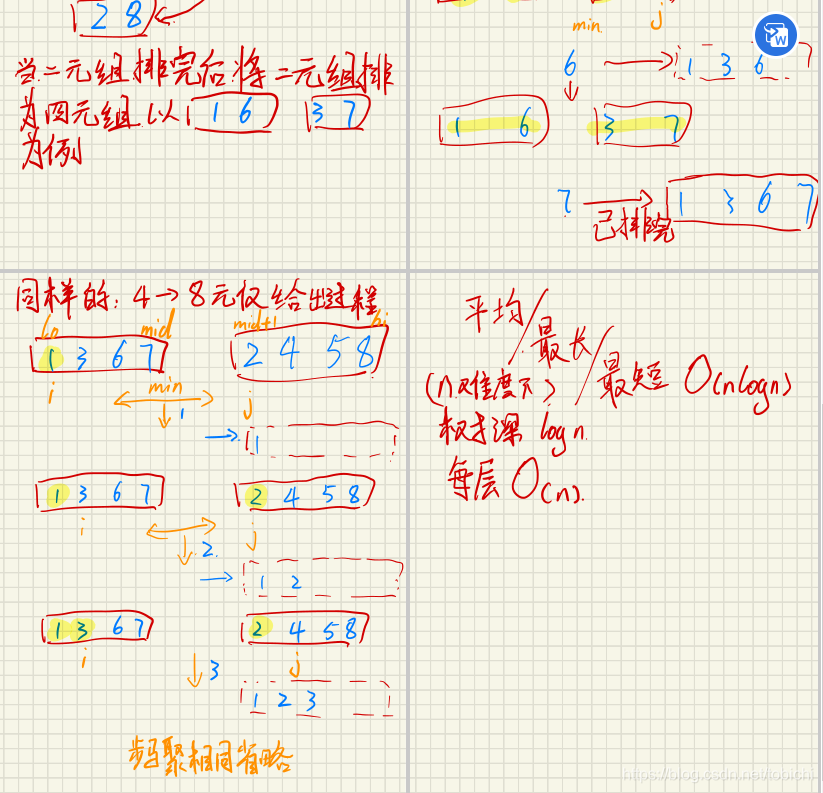 2 8
当二元组排完后.将二元组排
为四元组.以 1 6 3 7
为例
min j
6 1 3 6
1 6 3 7
7 已排完 1 3 6 7
同样的: 4→8元仅给出过程
lo mid mid+1 hi
1 3 6 7 2 4 5 8
i min j
1
1
1 3 6 7 2 4 5 8
i j
2.
1 2
1 3 6 7 2 4 5 8
i j
3
1 2 3
步骤相同省略
平均/最长/最短 O(nlogn)
(n
log n
每层 O(n).
W
https://blog.csdn.net/tobichi